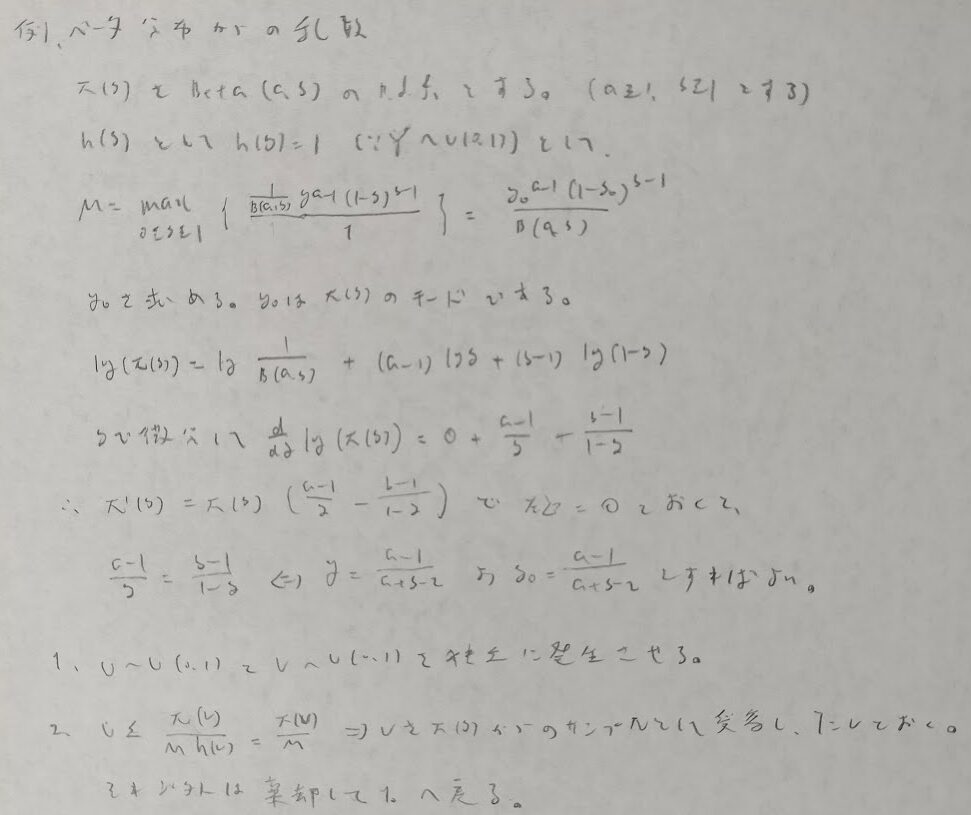 例1. ベータ分布からの乱数
π(y) を Beta(a, b) の p.d.f. とする。 (a≧1, b≧1 とする)
h(y) として h(y)=1 (∵ Y ~ U(0,1)) として、
M = max_{0≦y≦1} { \frac{\frac{1}{B(a,b)} y^{a-1} (1-y)^{b-1}}{1} } = \frac{y_0^{a-1} (1-y_0)^{b-1}}{B(a,b)}
y_0 を求める。 y_0 は π(y) のモードである。
log(π(y)) = log \frac{1}{B(a,b)} + (a-1) log y + (b-1) log(1-y)
yで微分して \frac{d}{dy} log(π(y)) = 0 + \frac{a-1}{y} - \frac{b-1}{1-y}
∴ π'(y) = π(y) ( \frac{a-1}{y} - \frac{b-1}{1-y} ) で 右辺 = 0 とおくと、
\frac{a-1}{y} = \frac{b-1}{1-y} ⇔ y = \frac{a-1}{a+b-2} より y_0 = \frac{a-1}{a+b-2} とすればよい。
1. U ~ U(0,1) と V ~ U(0,1) を独立に発生させる。
2. U ≦ \frac{π(V)}{M h(V)} = \frac{π(V)}{M} ⇒ Vを π(y) からのサンプルとして受容し、Y=Vとおく。
それ以外は棄却して1.へ戻る。